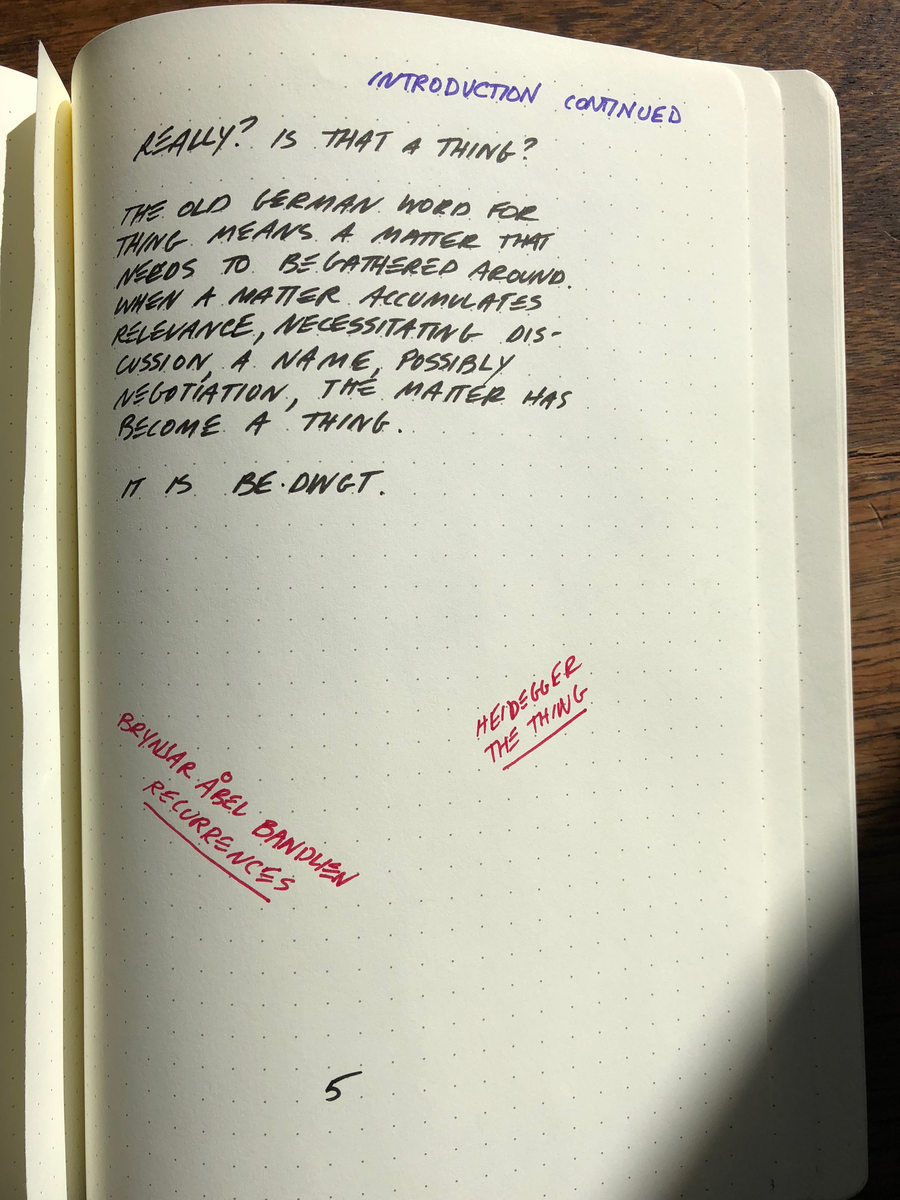 INTRODUCTION CONTINUED
REALLY? IS THAT A THING?
THE OLD GERMAN WORD FOR
THING MEANS A MATTER THAT
NEEDS TO BE GATHERED AROUND.
WHEN A MATTER ACCUMULATES
RELEVANCE, NECESSITATING DIS-
CUSSION, A NAME, POSSIBLY
NEGOTIATION, THE MATTER HAS
BECOME A THING.
IT IS BE·DINGT.
HEIDEGGER
THE THING
BRYNJAR ÅBEL BANDLIEN
RECURRENCES
5